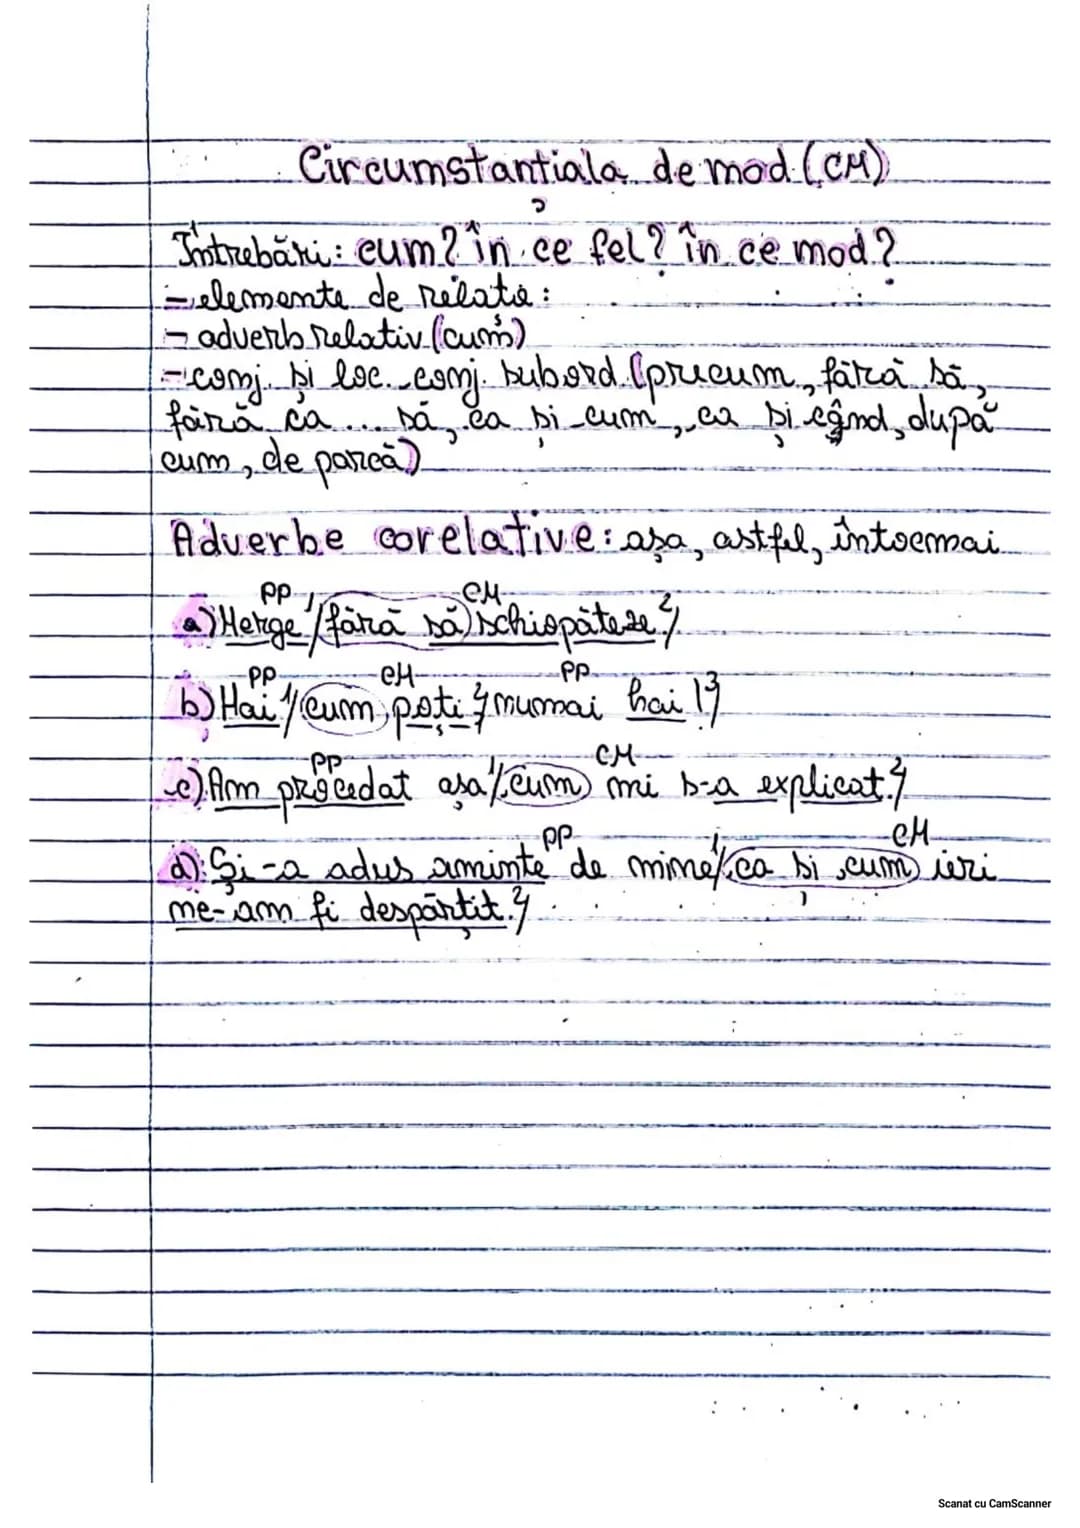 Circumstanțiala de mod (CM)
Întrebări: cum? în ce fel? în ce mod?
- elemente de relație:
- adverb relativ (cum)
- conj. și loc. conj. subord. (precum, fără să,
fără ca ... să, ca și cum, ca și când, după
cum, de parcă)
Adverbe corelative: așa, astfel, întocmai
PP CM
a) Merge 1/ fără să șchiopăteze. 2/
PP CM PP
b) Hai 1/ cum poți 2/ numai hai! 3/
PP CM
c) Am procedat așa 1/, cum mi s-a explicat. 2/
PP CM
d) Și-a adus aminte de mine 1/, ca și cum ieri
ne-am fi despărțit. 2/
Scanat cu CamScanner